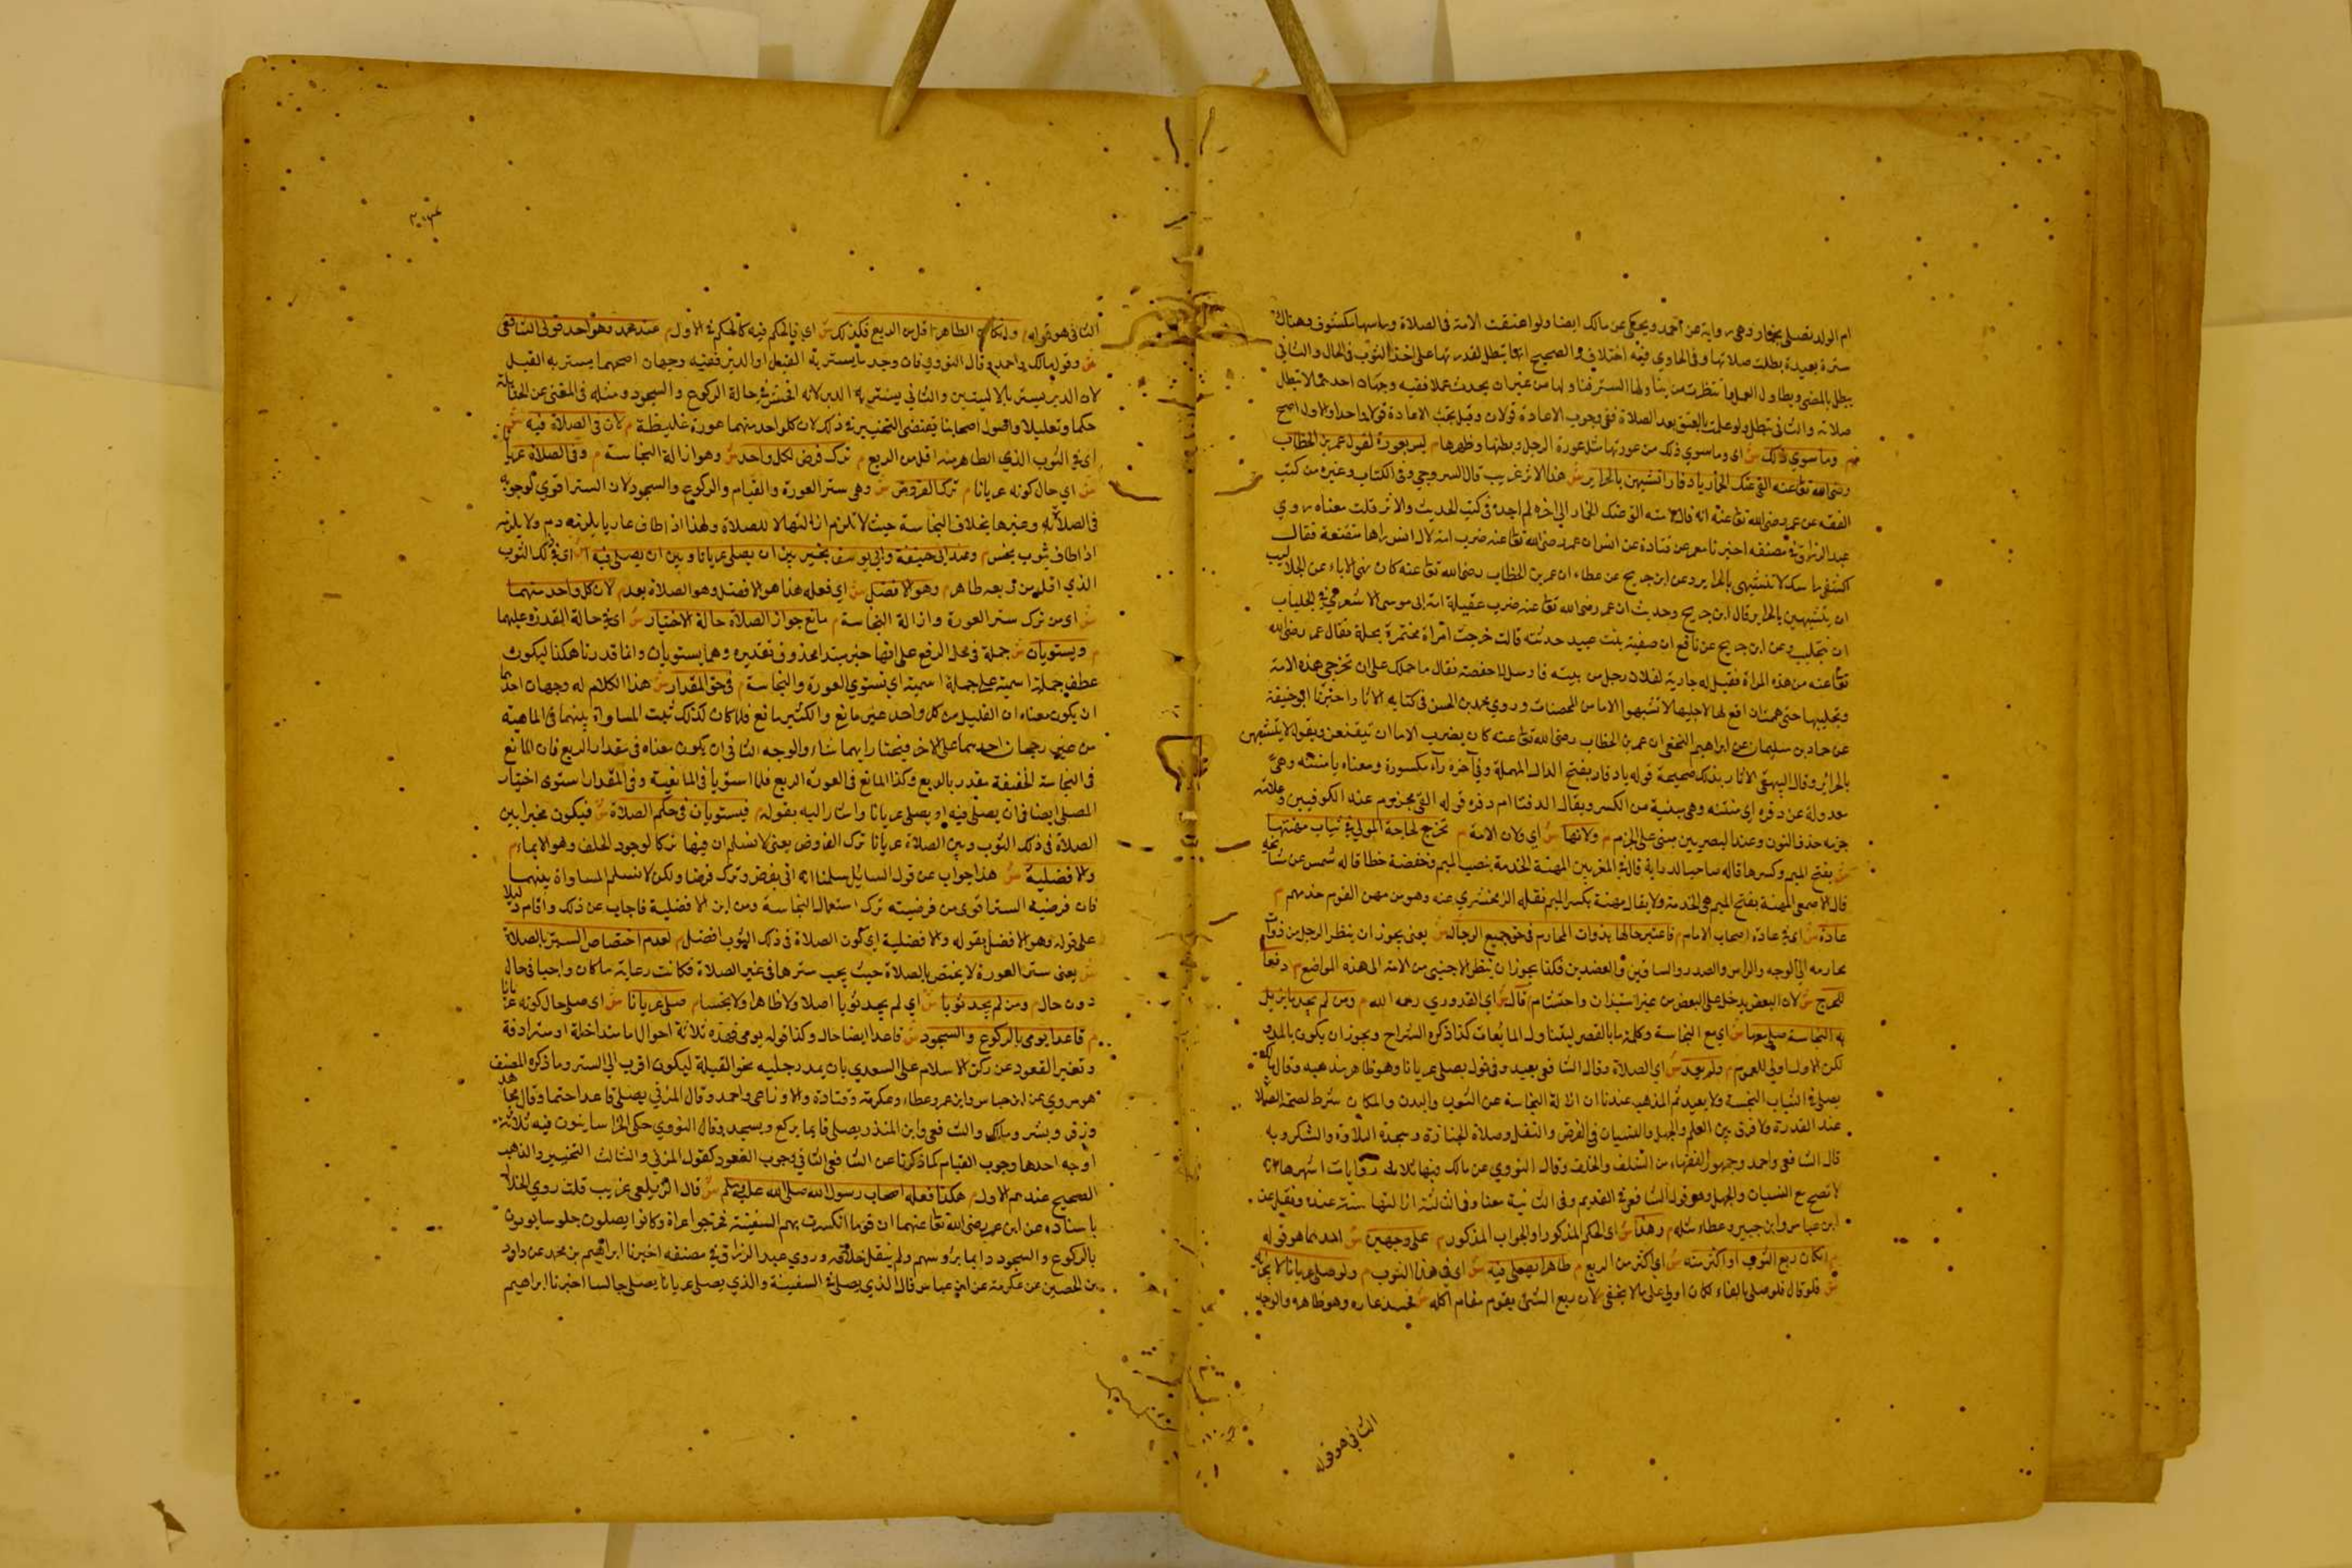 ام الولد تصلي بخمار وهي رواية عن احمد ويحكى عن مالك ايضا ولو اعتقت الامة في الصلاة وراسها مكشوف وهناك
سترة بعيدة بطلت صلاتها وفي الحاوي فيه اختلاف والصحيح انها تبطل لقدرتها على اخذ الثوب في الحال والثاني
يبطل بالمضي ويطاول العمل وما انتظرت من يناولها الستر فناولها من غير ان يحدث عملا ففيه وجهان احدهما لا تبطل
صلاته والثاني تبطل ولو علمت بالعتق بعد الصلاة ففي وجوب الاعادة قولان وقيل تجب الاعادة قولا واحدا والاول اصح
م وما سوي ذلك ش اي وما سوي ذلك من عورتها مثل عورة الرجل وبطنها وظهرها م ليس بعورة لقول عمر بن الخطاب
رضي الله تعا عنه القي عنك الخمار يا دفار اتتشبهين بالحراير ش هذا الاثر غريب قال السروجي وفي الكتاب وغيره من كتب
الفقه عن عمر رضي الله تعا عنه انه قال لامته القي عنك الخمار الى اخره لم اجده في كتب الحديث والاثر قلت معناه روي
عبد الرزاق في مصنفه اخبرنا معمر عن قتادة عن انس ان عمر رضي الله تعا عنه ضرب امة لال انس راها متقنعة فقال
اكشفي راسك لا تتشبهي بالحراير وعن ابن جريج عن عطاء ان عمر بن الخطاب رضي الله تعا عنه كان نهى الاماء عن الجلابيب
ان يتشبهن بالحراير قال ابن جريج وحدثت ان عمر رضي الله تعا عنه ضرب عقيلة امة ابي موسى الاشعري في الجلباب
ان تتجلبب وعن ابن جريج عن نافع ان صفية بنت ابي عبيد حدثته قالت خرجت امراة مختمرة بحلة فقال عمر رضي الله
تعا عنه من هذه المراة فقيل له جارية لفلان رجل من بيته فارسل الى حفصة فقال ما حملك على ان تخرجي هذه الامة
وتجلببها حتى هممت ان اقع بها لا احسبها لا تشبهوا الاما من المحصنات وروي محمد بن الحسن في كتابه الاثار اخبرنا ابو حنيفة
عن حماد بن سليمان عن ابراهيم النخعي ان عمر بن الخطاب رضي الله تعا عنه كان يضرب الاما ان يتقنعن ويقول لا يتشبهن
بالحرائر وقال البيهقي الاثار بذلك صحيحة قوله يا دفار بفتح الدال المهملة وفي آخره راء مكسورة ومعناه يا منتنه وهي
معدولة عن دفره اي منتنه وهي مبنية من الكسر ويقال الدفتا ام دفره قوله القي مجزوم عند الكوفيين وعلامة
جزمه حذف النون وعند البصريين مبني على الجزم م ولانها ش اي ولان الامة م تخرج لحاجة المولي في ثياب مهنتها
ش بفتح الميم وكسرها قاله صاحب الدراية قال في المغربين المهنة الخدمة بنصب الميم وخفضه خطا قاله شمس عن مشا
قال الاصمعي المهنة بفتح الميم هي الخدمة ولا يقال مهنة بكسر الميم نقله الزمخشري عنه وهو من مهن القوم خدمهم م
عادة ش اي في عادة اصحاب الاما م فاعتبر حالها بذوات المحارم في حق جميع الرجال ش يعني يجوز ان ينظر الرجل من ذوات
محارمه الى الوجه والراس والصدر والساقين والعضدين فكذا يجوز ان ينظر الاجنبي من الامة الى هذه المواضع م دفعا
للحرج ش لان البعض يدخل على البعض من غير استيذان واحتشام م قال ش اي القدوري رحمه الله م ومن لم يجد ما يزيل
به النجاسة صلى معها ش اي مع النجاسة وكلمة ما بالقصر ليتناول المايعات كذا ذكره الشراح ويجوز ان يكون بالمد
لكن الاول اولي للعموم م ولم يعد ش اي الصلاة وقال الشافعي يعيد وفي قول يصلي عريانا وهو ظاهر مذهبه وقال مالك
يصلي في الثياب النجسة ولا يعيد ثم المذهب عندنا ان ازالة النجاسة عن الثوب والبدن والمكان شرط لصحة الصلاة
عند القدرة ولا فرق بين العلم والجهل والنسيان في الفرض والنفل وصلاة الجنازة وسجدة التلاوة والشكر وبه
قال الشافعي واحمد وجمهور الفقهاء من السلف والخلف وقال النووي عن مالك فيها ثلاث روايات اشهرها
لا تصح مع النسيان والجهل وهو قول الشافعي في القديم وفي الثانية معنا وفي الثالثة ازالتها سنة عنده ونقل عن
ابن عباس وابن جبير وعطاء مثله م وهذا ش اي الحكم المذكور او الجواب المذكور م على وجهين ش احدهما هو قوله
م ان كان ربع الثوب او اكثر منه ش اي اكثر من الربع م طاهرا يصلي فيه ش اي في هذا الثوب م ولو صلى عريانا لا يجزئه
ش فلو قال فلو صلى بالفاء لكان اولي على ما لا يخفى م لان ربع الشئ يقوم مقام اكله ش فحينئذ عاره وهو طاهر والوجه
الثاني هو قوله
الثاني هو قوله م وان كان الطاهر اقل من الربع فكذلك ش اي فالحكم فيه كالحكم في الاول م عند محمد وهو احد قولي الشافعي
ش وقول مالك واحمد وقال النووي فان وجد ما يستر به القبل او الدبر ففيه وجهان اصحهما يستر به القبل
لان الدبر يستر بالاليتين والثاني يستر به الدبر لانه افحش في حالة الركوع والسجود ومثله في المغني عن الحنابلة
حكما وتعليلا واصول اصحابنا يقتضي التخيير في ذلك لان كل واحد منهما عورة غليظة م لان في الصلاة فيه ش
اي في الثوب الذي الطاهر منه اقل من الربع م ترك فرض لكل واحد ش وهو ازالة النجاسة م وفي الصلاة عريانا
ش اي حال كونه عريانا م ترك الفروض ش وهي ستر العورة والقيام والركوع والسجود لان الستر اقوي لوجوبه
في الصلاة وغيرها بخلاف النجاسة حيث لا تلزم ازالتها الا للصلاة ولهذا اذا طاف عاريا يلزمه دم ولا يلزمه
اذا طاف بثوب نجس م وعند ابي حنيفة وابي يوسف يتخير بين ان يصلي عريانا وبين ان يصلي فيه ش اي في ذلك الثوب
الذي اقل من ربعه طاهر م وهو الافضل ش اي فعله هذا هو الافضل وهو الصلاة بعد م لان كل واحد منهما
ش اي من ترك ستر العورة وازالة النجاسة م مانع جواز الصلاة حالة الاختيار ش اي في حالة القدرة عليهما
م ويستويان ش جملة في محل الرفع على انها خبر مبتدا محذوف تقديره وهما يستويان وانما قدرنا هكذا ليكون
عطف جملة اسمية على جملة اسمية اي تستوي العورة والنجاسة م في حق المقدار ش هذا الكلام له وجهان احدهما
ان يكون معناه ان القليل من كل واحد غير مانع والكثير مانع فلما كان كذلك ثبت المساواة بينهما في الماهية
من غير رجحان احدهما على الاخر فيختار ايهما شاء والوجه الثاني ان يكون معناه في مقدار الربع فان المانع
في النجاسة الخفيفة مقدر بالربع وكذا المانع في العورة الربع فلما استويا في المانعية وفي المقدار استوى اختيار
المصلي ايضا في ان يصلي فيه او يصلي عريانا واشار اليه بقوله م فيستويان في حكم الصلاة ش فيكون مخيرا بين
الصلاة في ذلك الثوب وبين الصلاة عريانا ترك الفروض يعني لا نسلم ان فيها تركا لوجود الخلف وهو الايماء م
والافضلية ش هذا جواب عن قول السائل سلمنا انه اتى بفرض وترك فرضا ولكن لا نسلم المساواة بينهما
فان فرضية الستر اقوى من فرضيته ترك استعمال النجاسة ومن اين الافضلية فاجاب عن ذلك واقام دليلا
على قوله وهو الافضل بقوله والافضلية اي كون الصلاة في ذلك الثوب افضل م لعدم اختصاص الستر بالصلاة
ش يعني ستر العورة لا يختص بالصلاة حيث يجب سترها في غير الصلاة فكانت رعاية ما كان واجبا في حال
دون حال م ومن لم يجد ثوبا ش اي لم يجد ثوبا اصلا ولا طاهرا ولا نجسا م صلى عريانا ش اي صلى حال كونه عريانا
م قاعدا يومي بالركوع والسجود ش قاعدا ايضا حال وكذا قوله يومي فهذه ثلاثة احوال اما متداخلة او مترادفة
وتفسير القعود عن ركن الاسلام علي السعدي بان يمد رجليه نحو القبلة ليكون اقرب الى الستر وما ذكره المصنف
هو مروي عن ابن عباس وابن عمر وعطاء وعكرمة وقتادة والاوزاعي واحمد وقال المزني يصلي قاعدا حتما وقال مجاهد
وزفر وبشر ومالك والشافعي وابن المنذر يصلي قايما يركع ويسجد وقال النووي حكى الخراسانيون فيه ثلاثة
اوجه احدها وجوب القيام كما ذكرنا عن الشافعي الثاني وجوب القعود كقول المزني والثالث التخيير والمذهب
الصحيح عندهم الاول م هكذا فعله اصحاب رسول الله صلى الله عليه وسلم ش قال الزيلعي غريب قلت روي الخلال
باسناده عن ابن عمر رضي الله تعا عنهما ان قوما انكسرت بهم السفينة فخرجوا عراة وكانوا يصلون جلوسا يومون
بالركوع والسجود ايماء برؤوسهم ولم ينقل خلافه وروي عبد الرزاق في مصنفه اخبرنا ابراهيم بن محمد عن داود
بن الحصين عن عكرمة عن ابن عباس قال الذي يصلي في السفينة والذي يصلي عريانا يصلي جالسا اخبرنا ابراهيم